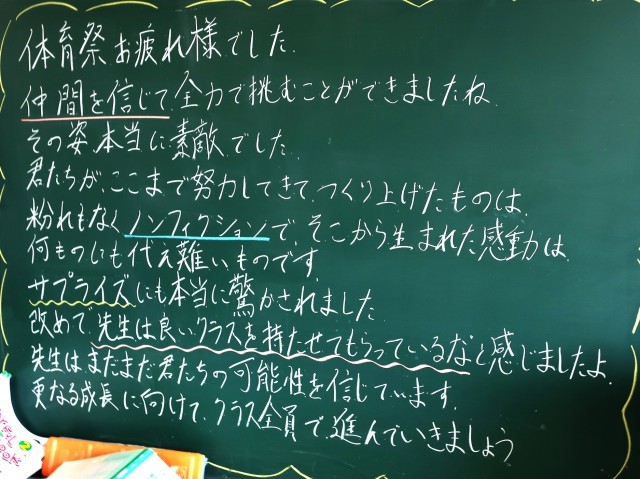 体育祭お疲れ様でした.
仲間を信じて、全力で挑むことができましたね.
その姿、本当に素敵でした.
君たちが、ここまで努力してきて、つくり上げたものは、
紛れもなくノンフィクションで、そこから生まれた感動は、
何ものにも代え難いものです.
サプライズにも本当に驚かされました.
改めて、先生は良いクラスを持たせてもらっているなと感じましたよ.
先生はまだまだ君たちの可能性を信じています.
更なる成長に向けて、クラス全員で、進んでいきましょう